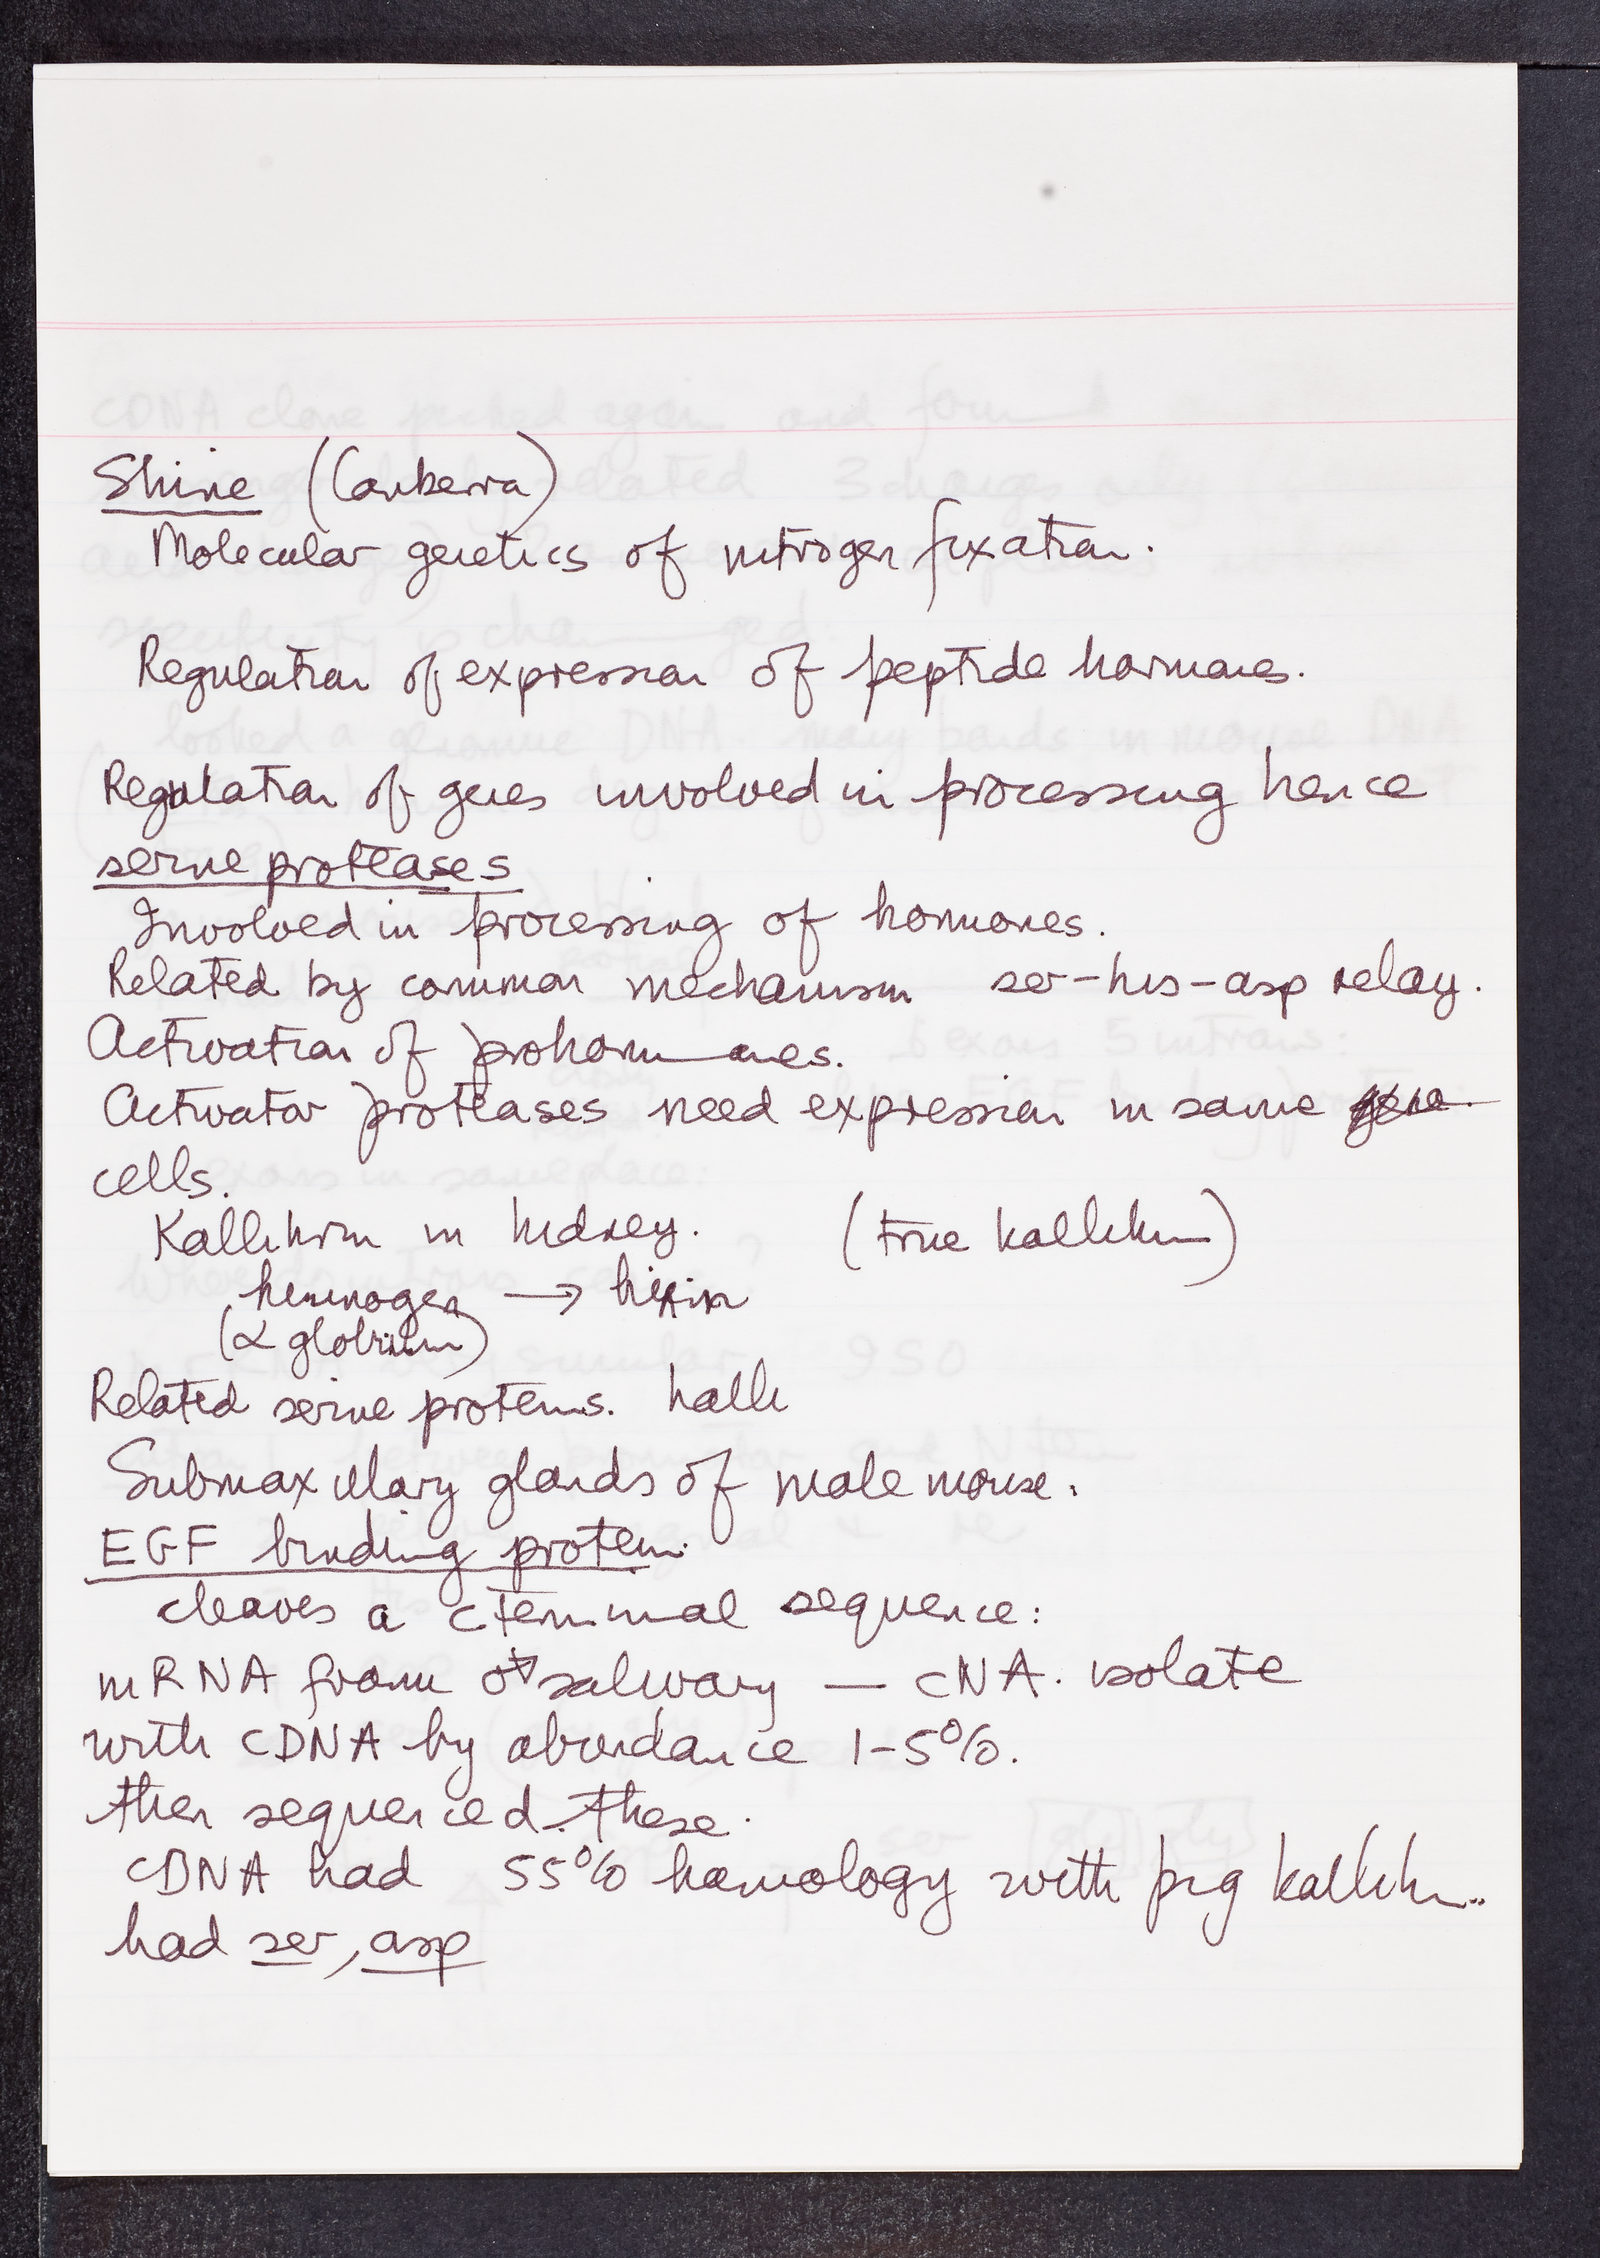 Shine (Canberra)
Molecular genetics of nitrogen fixation.
Regulation of expression of peptide hormones.
Regulation of genes involved in processing hence
serine proteases
Involved in processing of hormones.
Related by common mechanism ser-his-asp relay.
Activation of prohormones.
Activator proteases need expression in same gene
cells.
Kallikrin in kidney. (true kallikin)
kininogen → kinin
(α globulin)
Related serine proteins. kalli
Submaxillary glands of male mouse.
EGF binding protein.
cleaves a c terminal sequence:
mRNA from ♂ salivary — cNA. isolate
with cDNA by abundance 1-5%.
then sequenced these.
cDNA had 55% homology with pig kallikin..
had ser, asp